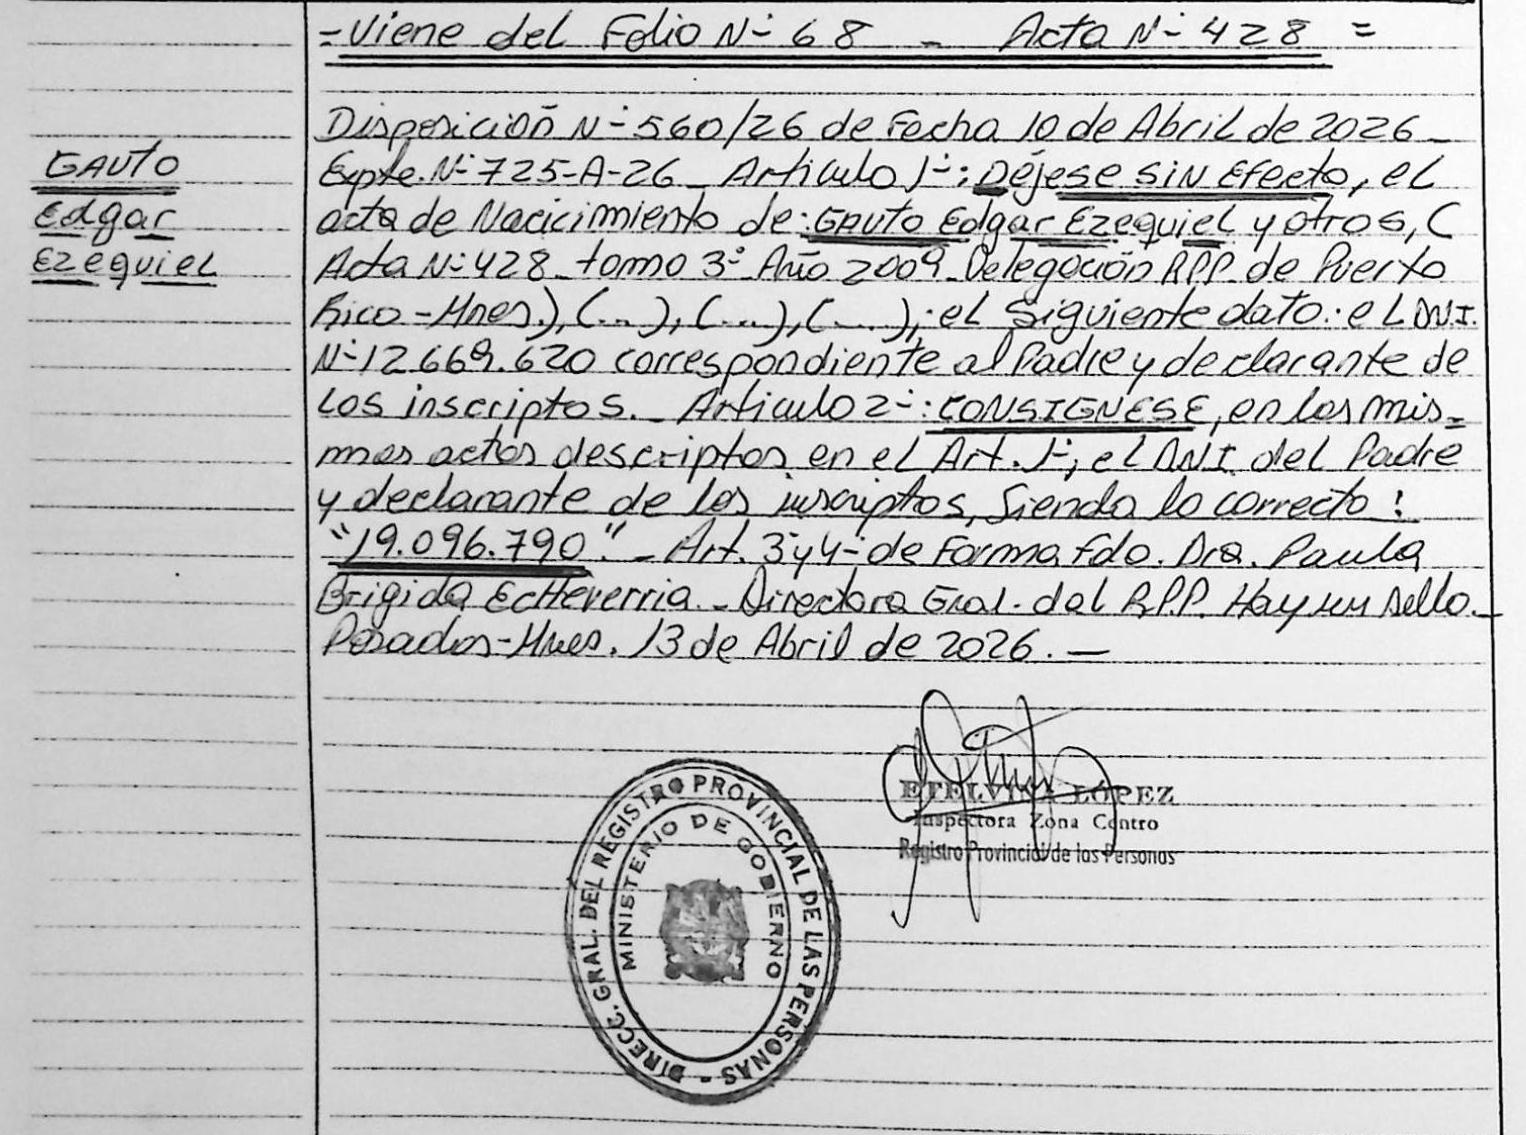 =Viene del Folio N° 68 - Acta N° 428 =
GAUTO
Edgar
Ezequiel
Disposición N° 560/26 de Fecha 10 de Abril de 2026_
Expte. N° 725-A-26_ Articulo 1°: Déjese SIN EFecto, el
acta de Nacicimiento de: GAUTO Edgar Ezequiel y otros, (
Acta N° 428_ tomo 3° Año 2009_ Delegación RPP. de Puerto
Rico-Mnes.), (...), (....), (....), el siguiente dato: el D.N.I.
N° 12.669.620 correspondiente al Padre y declarante de
Los inscriptos._ Articulo 2°: CONSIGNESE, en las mis=
mas actas descriptas en el Art. 1°, el DNI del Padre
y declarante de los inscriptos, Siendo lo correcto:
"19.096.790"._ Art. 3 y 4° de Forma. Fdo. Dra. Paula
Brigida Echeverria_ Directora Gral. del R.P.P. Hay un sello._
Posadas-Mnes. 13 de Abril de 2026._
ETELVINA LÓPEZ
Inspectora Zona Centro
Registro Provincial de las Personas
DIRECC. GRAL. DEL REGISTRO PROVINCIAL DE LAS PERSONAS -
MINISTERIO DE GOBIERNO